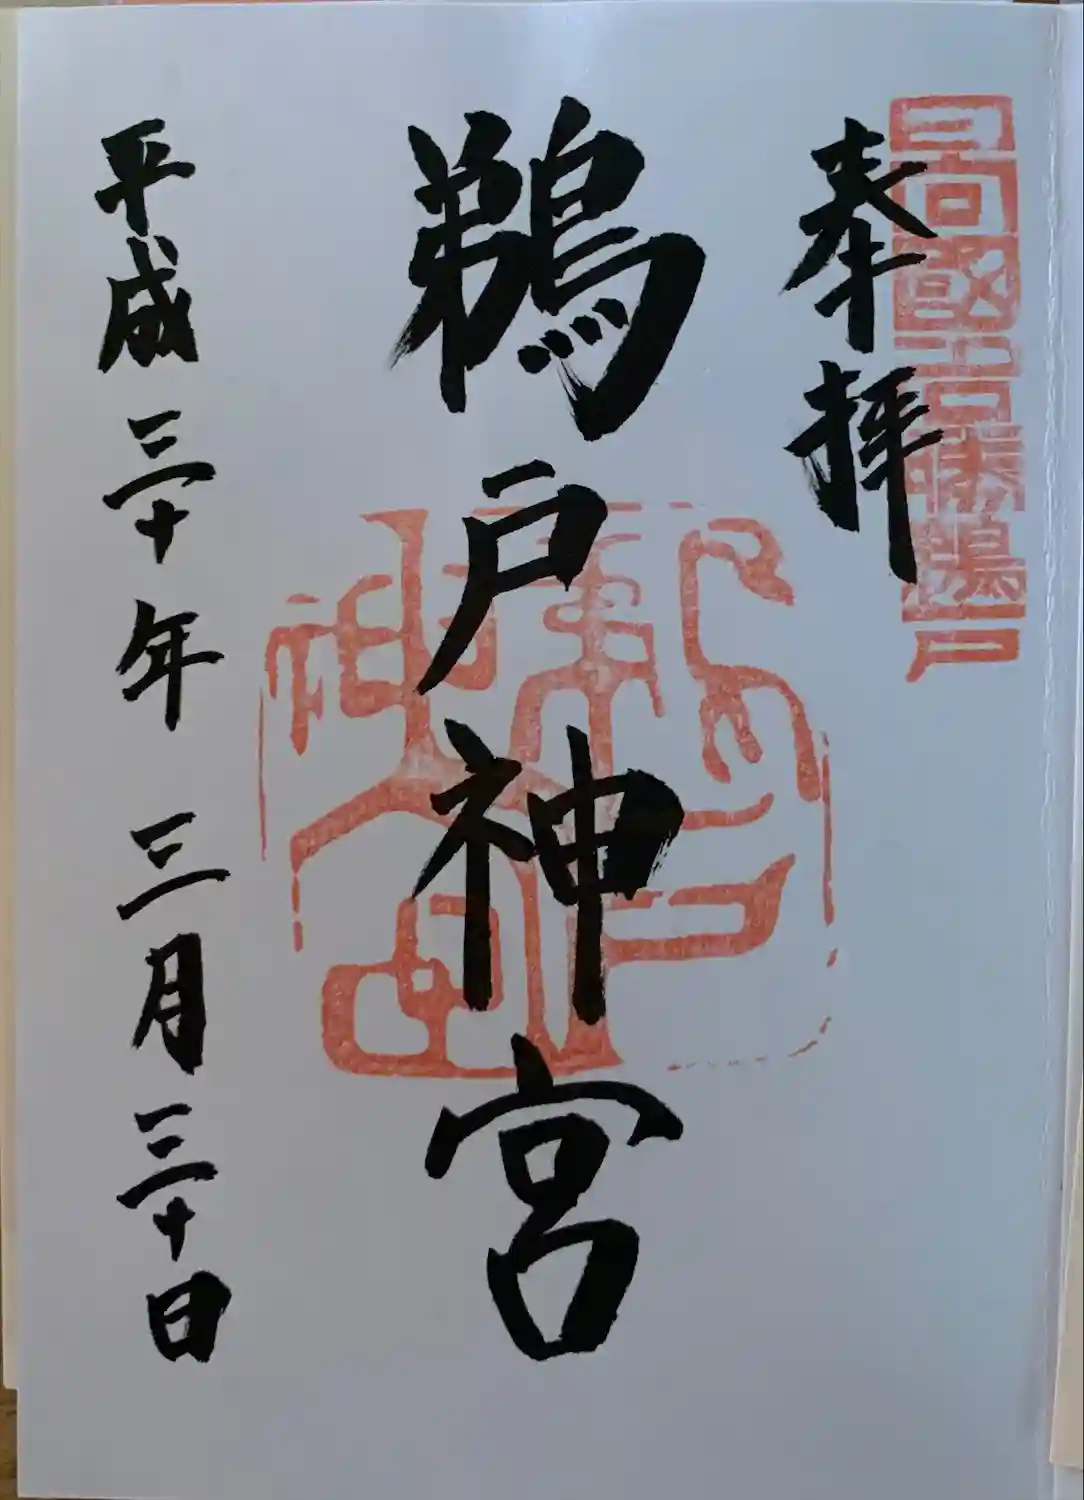 日向國吉祥鵜戸
奉拝
鵜戸神宮
平成三十年 三月三十日